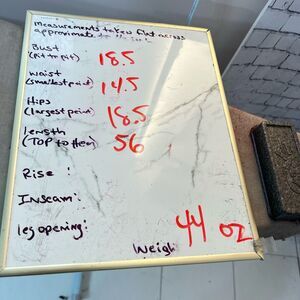 Measurements taken flat across
approximate to
Bust 18.5
(Pit to pit)
Waist 14.5
(smallest point)
Hips 18.5
(largest point)
Length 56
(TOP to Hem)
Rise :
Inseam :
leg opening :
Weigh 44 oz